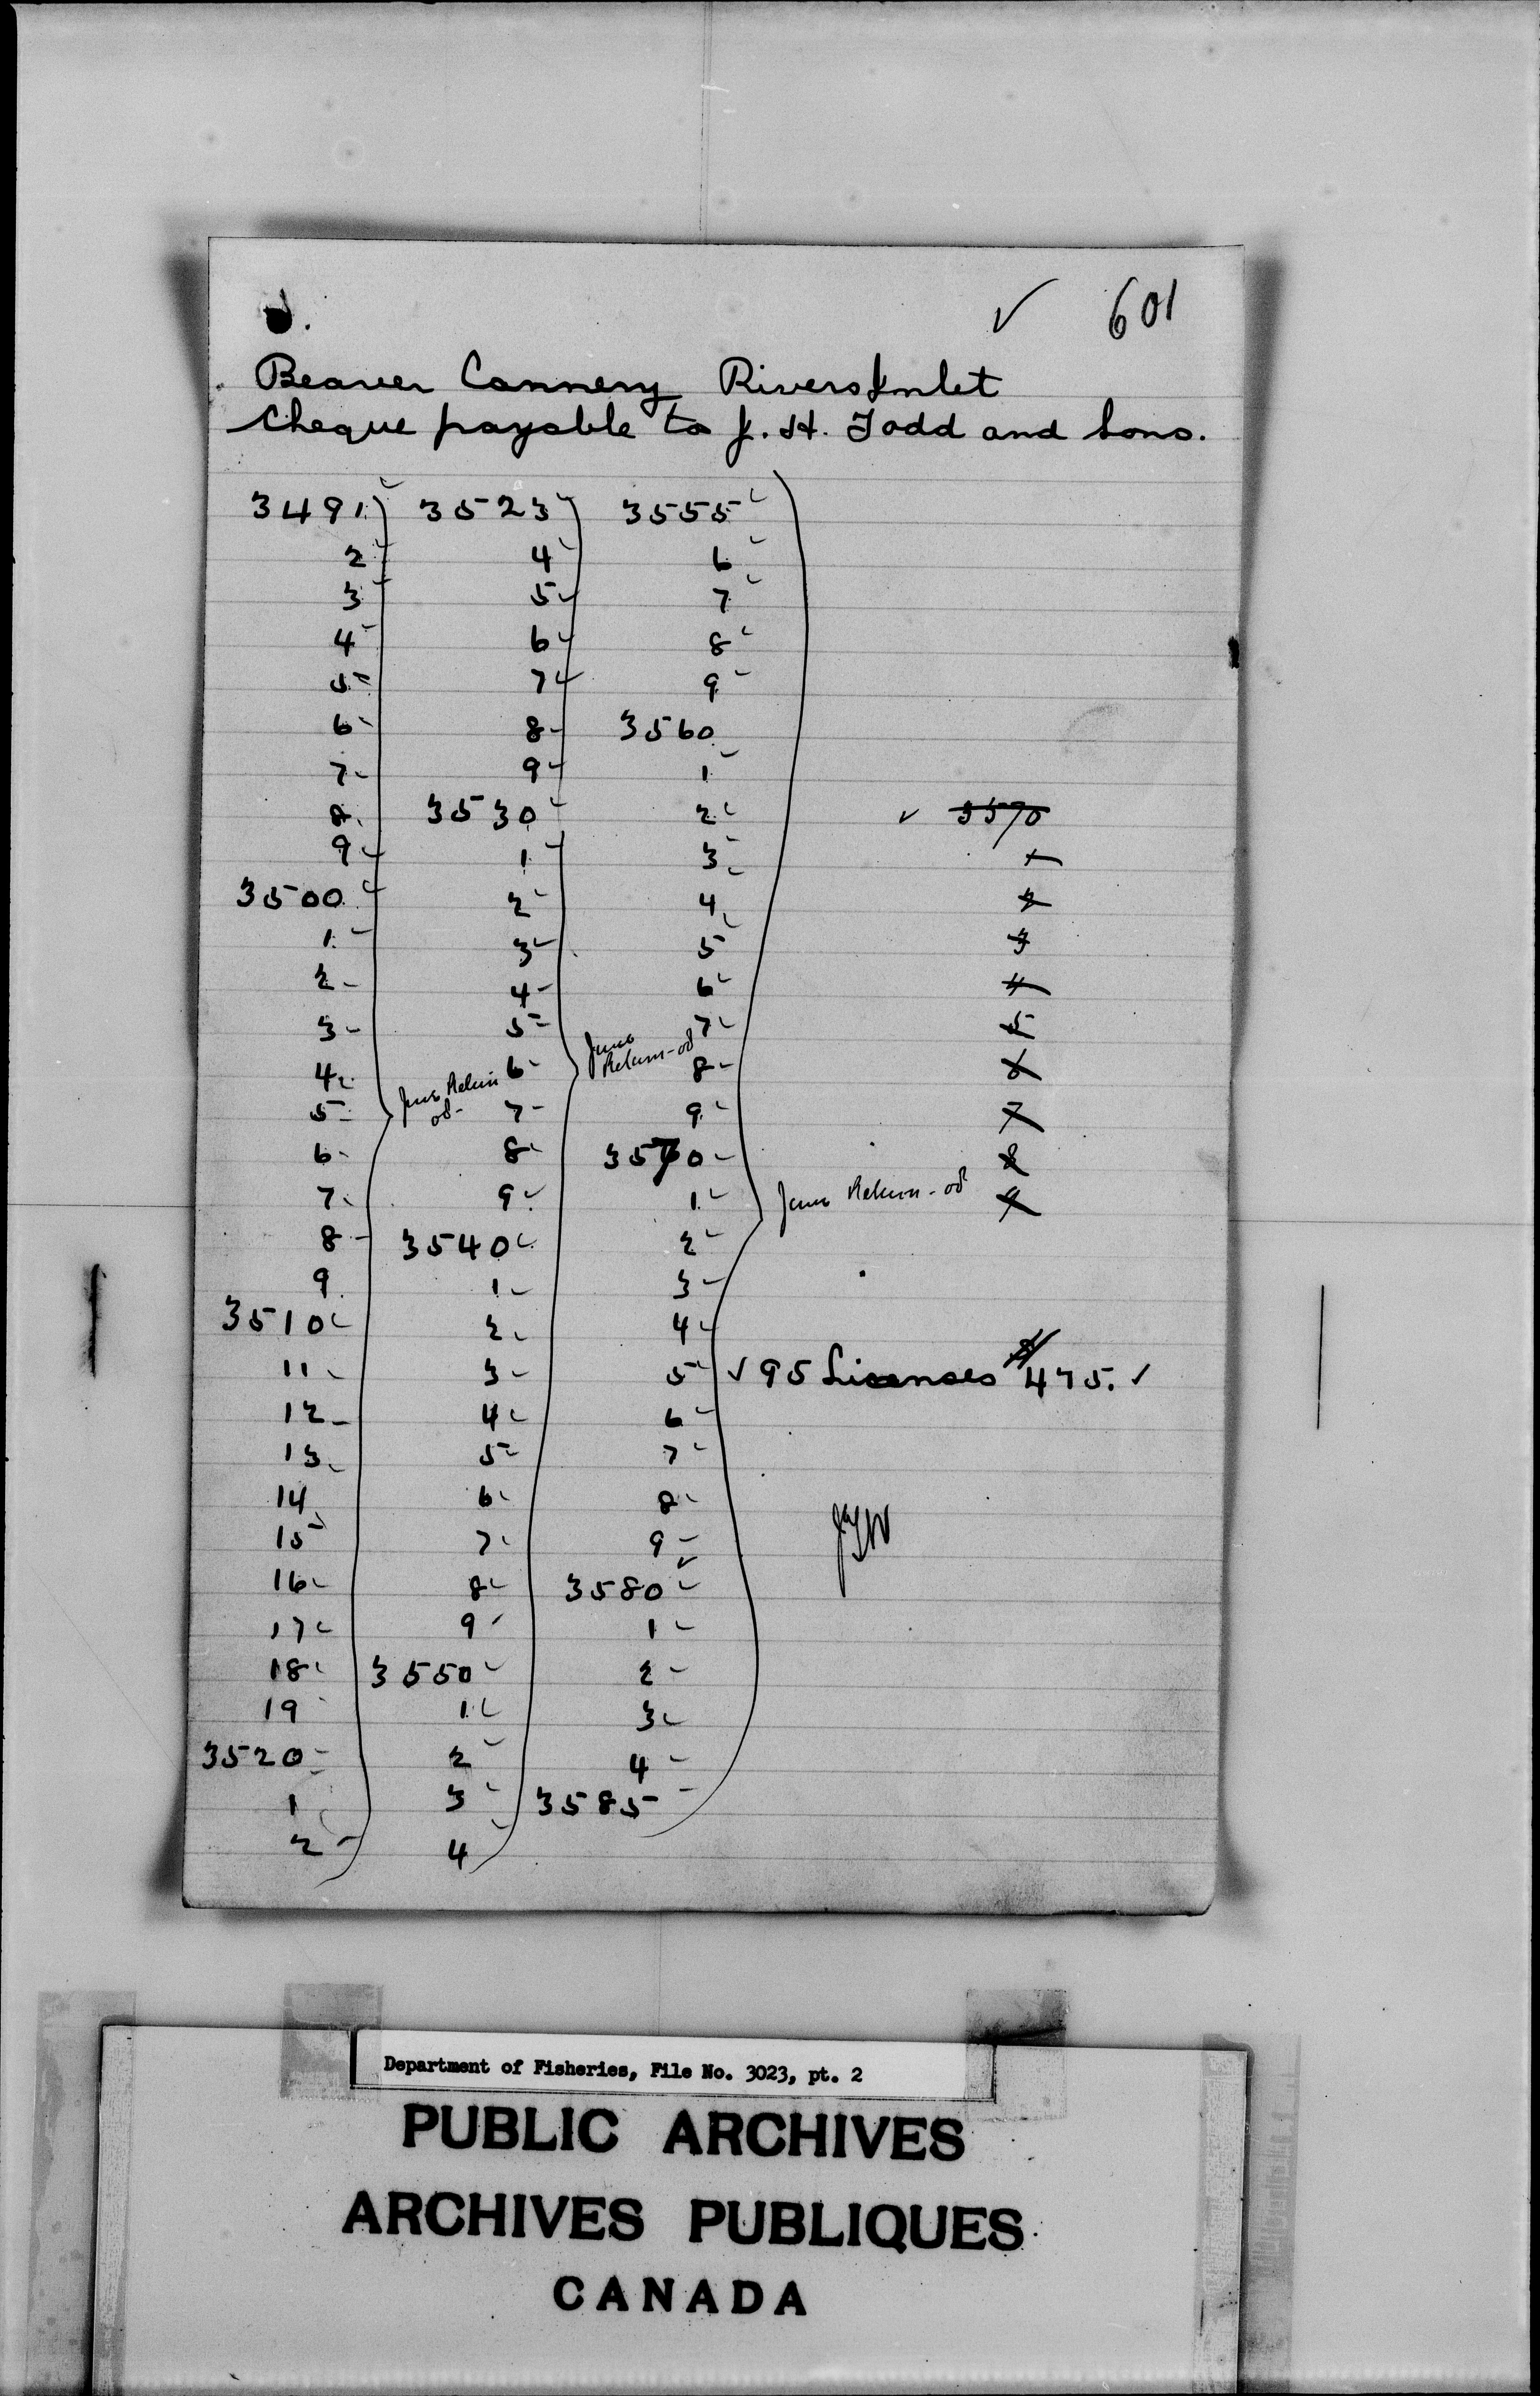 ✓ 601
Beaver Cannery Rivers Inlet
Cheque payable to J. H. Todd and Sons.
3491 3523 3555
2 4 6
3 5 7
4 6 8
5 7 9
6 8 3560
7 9 1
8 3530 2 ✓ 3570
9 1 3 1
3500 2 4 2
1 3 5 3
2 4 6 4
3 5 7 5
4 6 8 6
5 7 9 7
6 8 3570 8
7 9 1 9
8 3540 2
9 1 3
3510 2 4
11 3 5 ✓ 95 Licenses $475. ✓
12 4 6
13 5 7
14 6 8
15 7 9
16 8 3580
17 9 1
18 3550 2
19 1 3
3520 2 4
1 3 3585
2 4
Return
Return
Return
Department of Fisheries, File No. 3023, pt. 2
PUBLIC ARCHIVES
ARCHIVES PUBLIQUES
CANADA